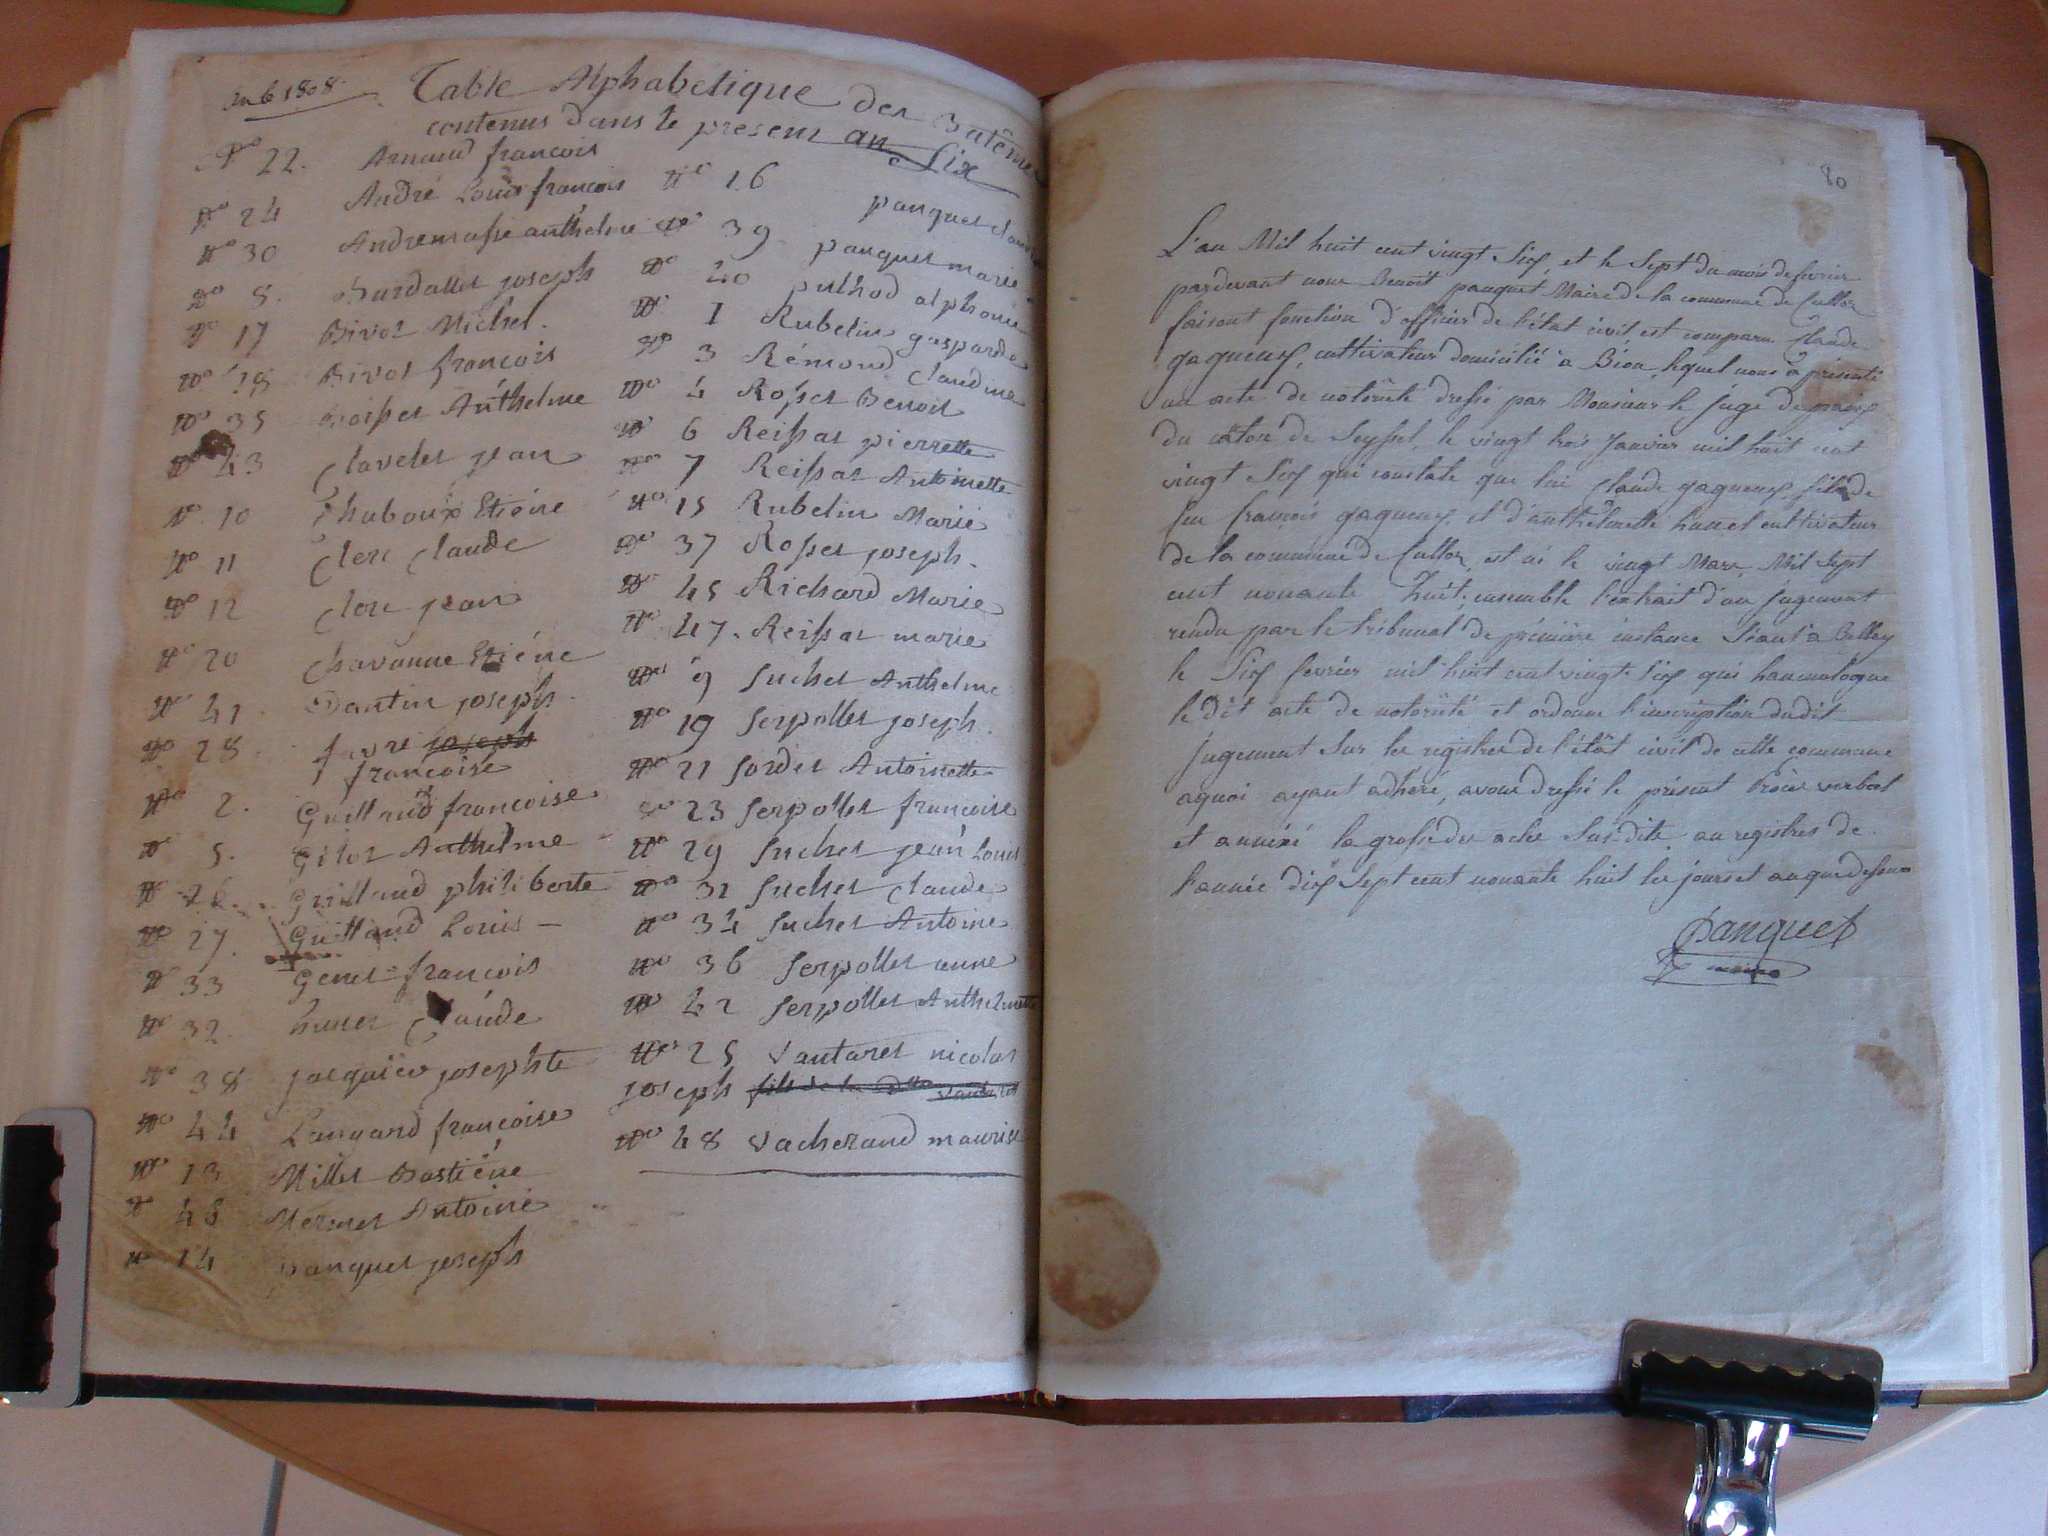 an 6 1808
Table Alphabetique des Batêmes
contenus dans le present an Six
N° 22. Arnaud francois
N° 24 André Louis francois
N° 30 Andremasse anthelme
N° 8. Burdallet joseph
N° 17 Bivot Michel.
N° 18 Bivot francois
N° 35 Boisset Anthelme
N° 43 Clavelet jean
N° 10 Chuboux Etiéne
N° 11 Clerc Claude
N° 12 Clerc jean
N° 20 Chavanne Etiéne
N° 41 Dantin joseph
N° 28. favre joseph
francoise
N° 2. Guilland francoise
N° 5. Gilot Anthelme
N° 26. Guilland philiberte
N° 27. Guilland Louis
N° 33 Genet francois
N° 32. hunet Claude
N° 38 jacquier josephte
N° 44 Langard francoise
N° 13 Millet Bastiéne
N° 48 Mermet Antoine
N° 14 panquet joseph
N° 16 panquet
N° 39 panquet marie
N° 40 pulhod alphonse
N° 1 Rubelin gasparde
N° 3 Rémond Claudine
N° 4 Rosset Benoit
N° 6 Reissat pierrette
N° 7 Reissat Antoinette
N° 15 Rubelin Marie
N° 37 Rosset joseph.
N° 45 Richard Marie
N° 47. Reissat marie
N° 9 Suchet Anthelme
N° 19 Serpollet joseph.
N° 21 Sordet Antoinette
N° 23 Serpollet francoise
N° 29 Suchet jean Louis
N° 31 Suchet Claude
N° 34 Suchet Antoine
N° 36 Serpollet anne
N° 42 Serpollet Anthelmette
N° 25 Vantaret nicolas
joseph fils de la Dlle Vantaret
N° 48 Vacherand maurise
80
L'an Mil huit cent vingt Six, et le Sept du mois de fevrier
pardevant nous Benoit panquet Maire de la commune de Culloz
faisant fonction d'officier de l'état civil, est comparu Claude
gagneux, cultivateur domicilié à Béon, lequel nous a présenté
un acte de notoriété dressé par Monsieur le juge de paix
du câton de Seyssel, le vingt trois Janvier mil huit cent
vingt Six qui constate que lui Claude gagneux, fils de
feu francois gagneux, et d'anthelmette hunet cultivateur
de la commune de Culloz, est né le vingt Mars, Mil Sept
cent nonante huit; ensemble l'extrait d'un jugement
rendu par le tribunal de prémière instance Séant à Belley
le Six fevrier mil huit cent vingt-Six qui haumologue
le dit acte de notoriété et ordonne l'inscription dudit
jugement Sur les registres de l'état civil de cette commune
aquoi ayant adhéré, avons dressé le présent Procès verbal
et annéxé la grosse des actes Sus-dite au registres de
l'année dix Sept cent nonante huit les jours et an que dessus
Panquet
maire